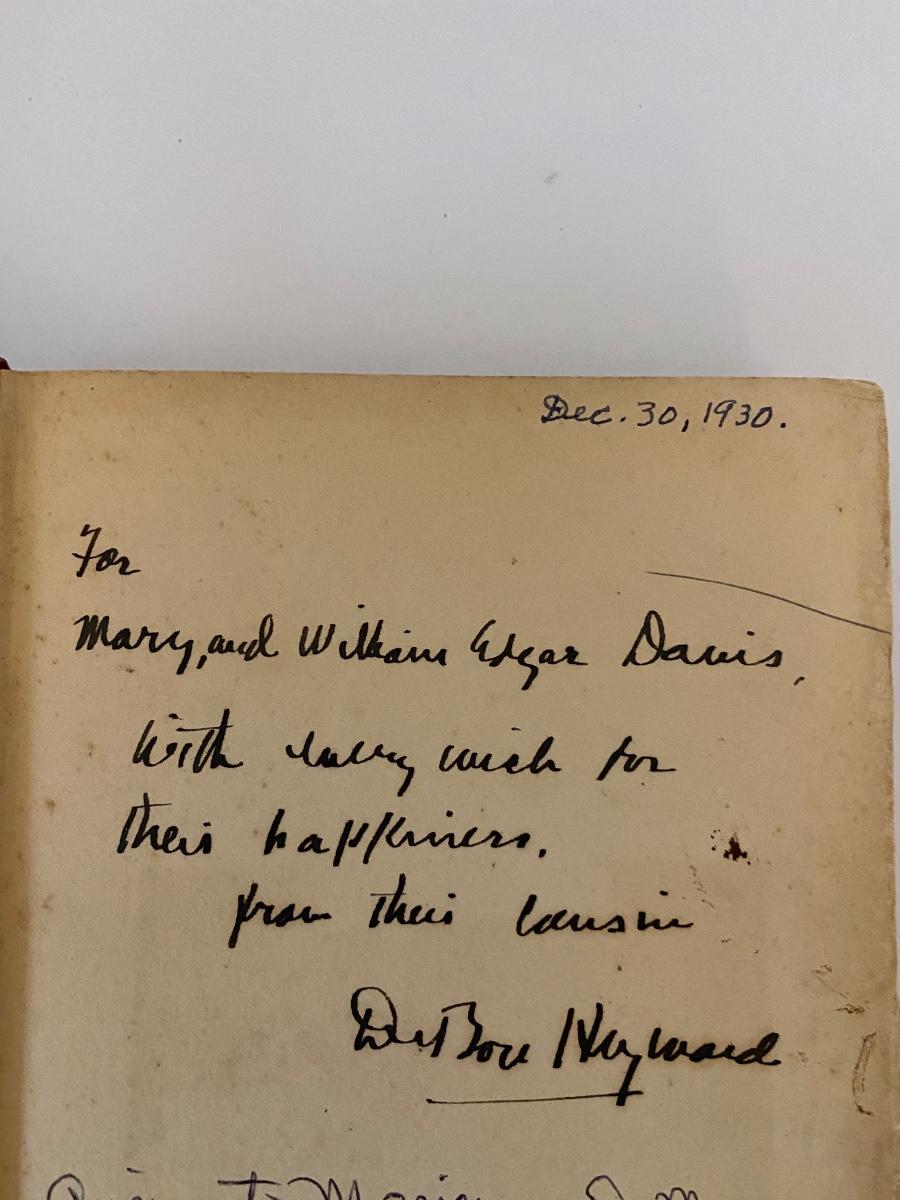 Dec. 30, 1930.
For
Mary, and William Edgar Davis,
With every wish for
their happiness.
from their cousin
DuBose Heyward
to